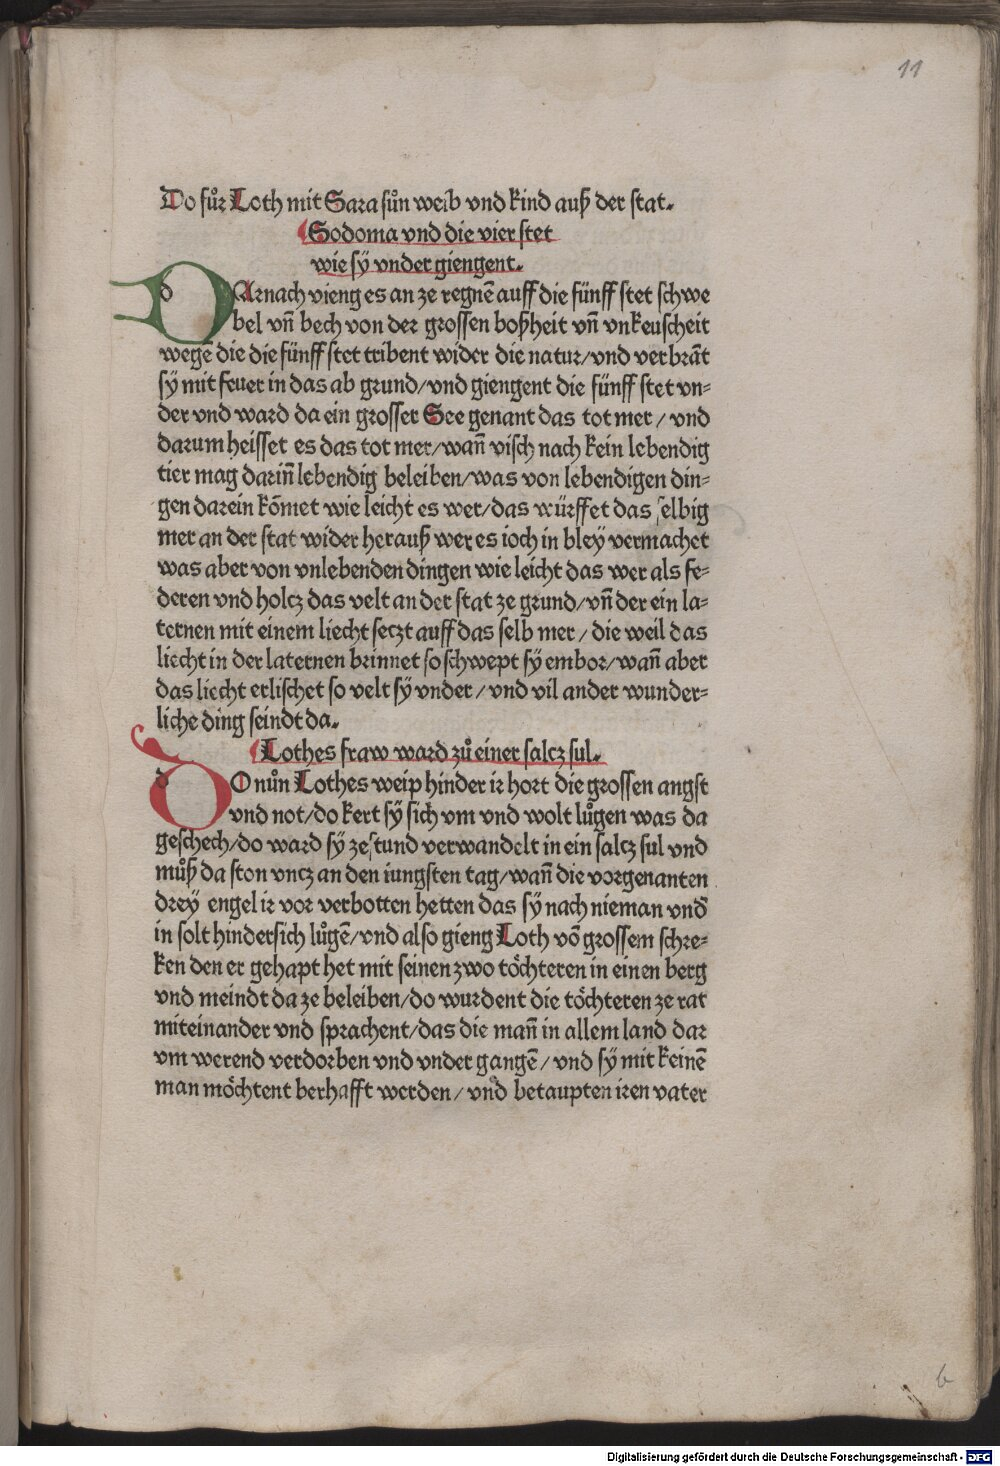 11
Do fůr Loth mit Sara sůn weib vnd kind auß der stat.
Sodoma vnd die vier stet
wie sÿ vnder giengent.
DArnach vieng es an ze regnē auff die fünff stet schwe
bel vn̄ bech von der grossen boßheit vn̄ vnkeuscheit
wegē die die fünff stet tribent wider die natur/vnd verbrāt
sÿ mit feuer in das ab grund/vnd giengent die fünff stet vn-
der vnd ward da ein grosser See genant das tot mer/vnd
darum heisset es das tot mer/wan̄ visch nach kein lebendig
tier mag darin̄ lebendig beleiben/was von lebendigen din-
gen darein kōmet wie leicht es wer/das würffet das selbig
mer an der stat wider herauß wer es ioch in bleÿ vermachet
was aber von vnlebenden dingen wie leicht das wer als fe-
deren vnd holcz das velt an der stat ze grund/vn̄ der ein la-
ternen mit einem liecht seczt auff das selb mer/die weil das
liecht in der laternen brinnet so schwept sÿ embor/wan̄ aber
das liecht erlischet so velt sÿ vnder/vnd vil ander wunder-
liche ding seindt da.
Lothes fraw ward zů einer salcz sul.
DO nůn Lothes weip hinder ir hort die grossen angst
vnd not/do kert sÿ sich vm vnd wolt lůgen was da
geschech/do ward sÿ zestund verwandelt in ein salcz sul vnd
můß da ston vncz an den iungsten tag/wan̄ die vorgenanten
dreÿ engel ir vor verbotten hetten das sÿ nach nieman vnd̄
in solt hindersich lůgē/vnd also gieng Loth vō grossem schre-
ken den er gehapt het mit seinen zwo töchteren in einen berg
vnd meindt da ze beleiben/do wurdent die töchteren ze rat
miteinander vnd sprachent/das die man̄ in allem land dar
vm werend verdorben vnd vnder gangē/vnd sÿ mit keinē
man möchtent berhafft werden/vnd betaupten iren vater
b
Digitalisierung gefördert durch die Deutsche Forschungsgemeinschaft - DFG